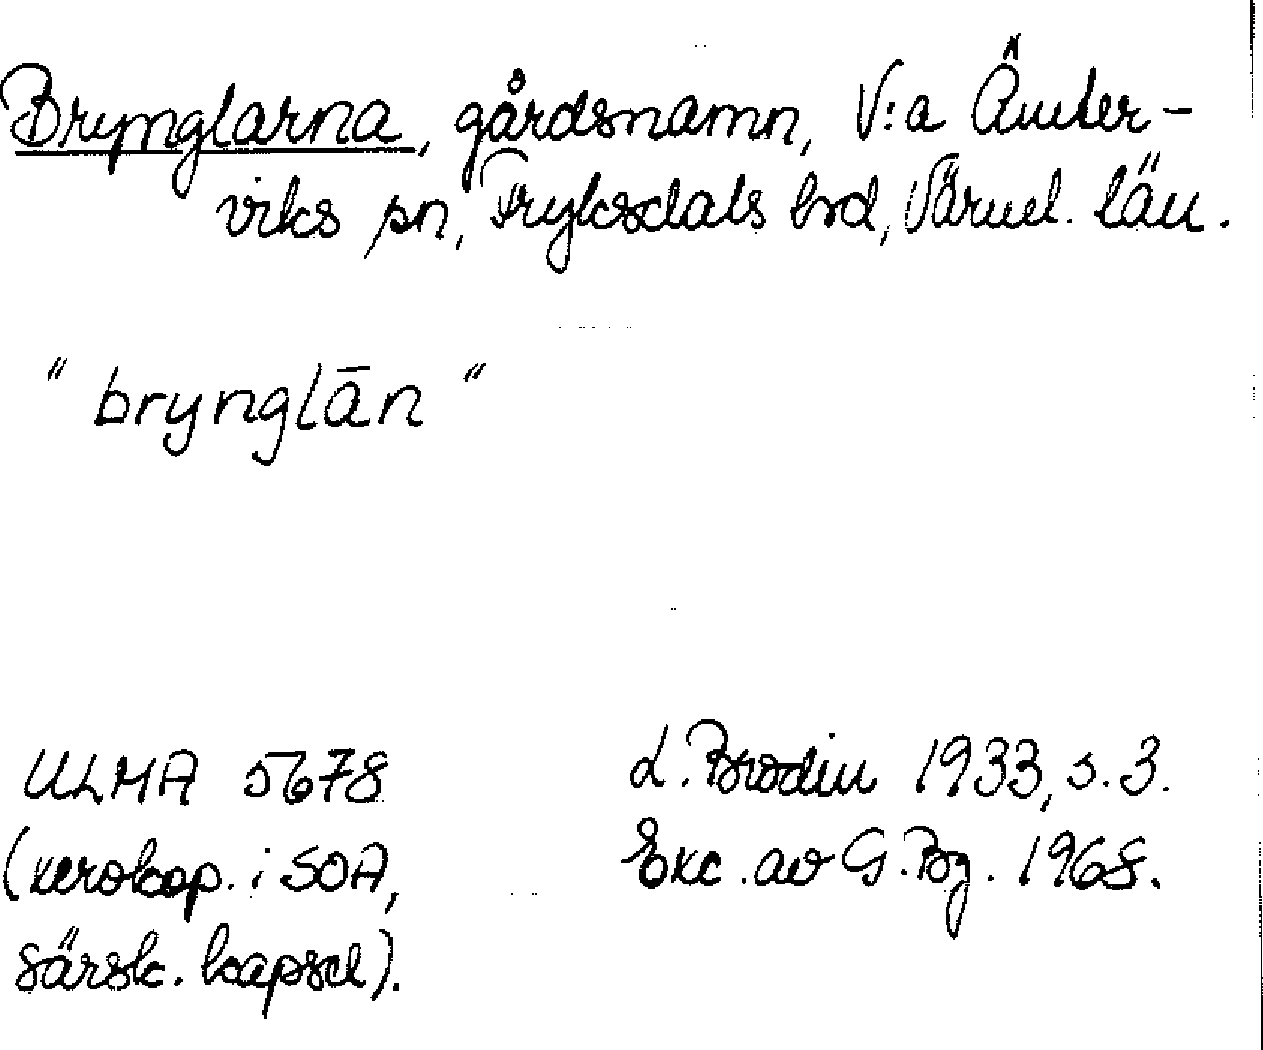 Brynglarna, gårdsnamn, V:a Ämter-
viks sn, Fryksdals hrd, Värml. län.
"brynglān"
ULMA 5678
(xerokop. i SOA,
särsk. kapsel).
L. Brodin 1933, s. 3.
Exc. av G. Bg. 1968.